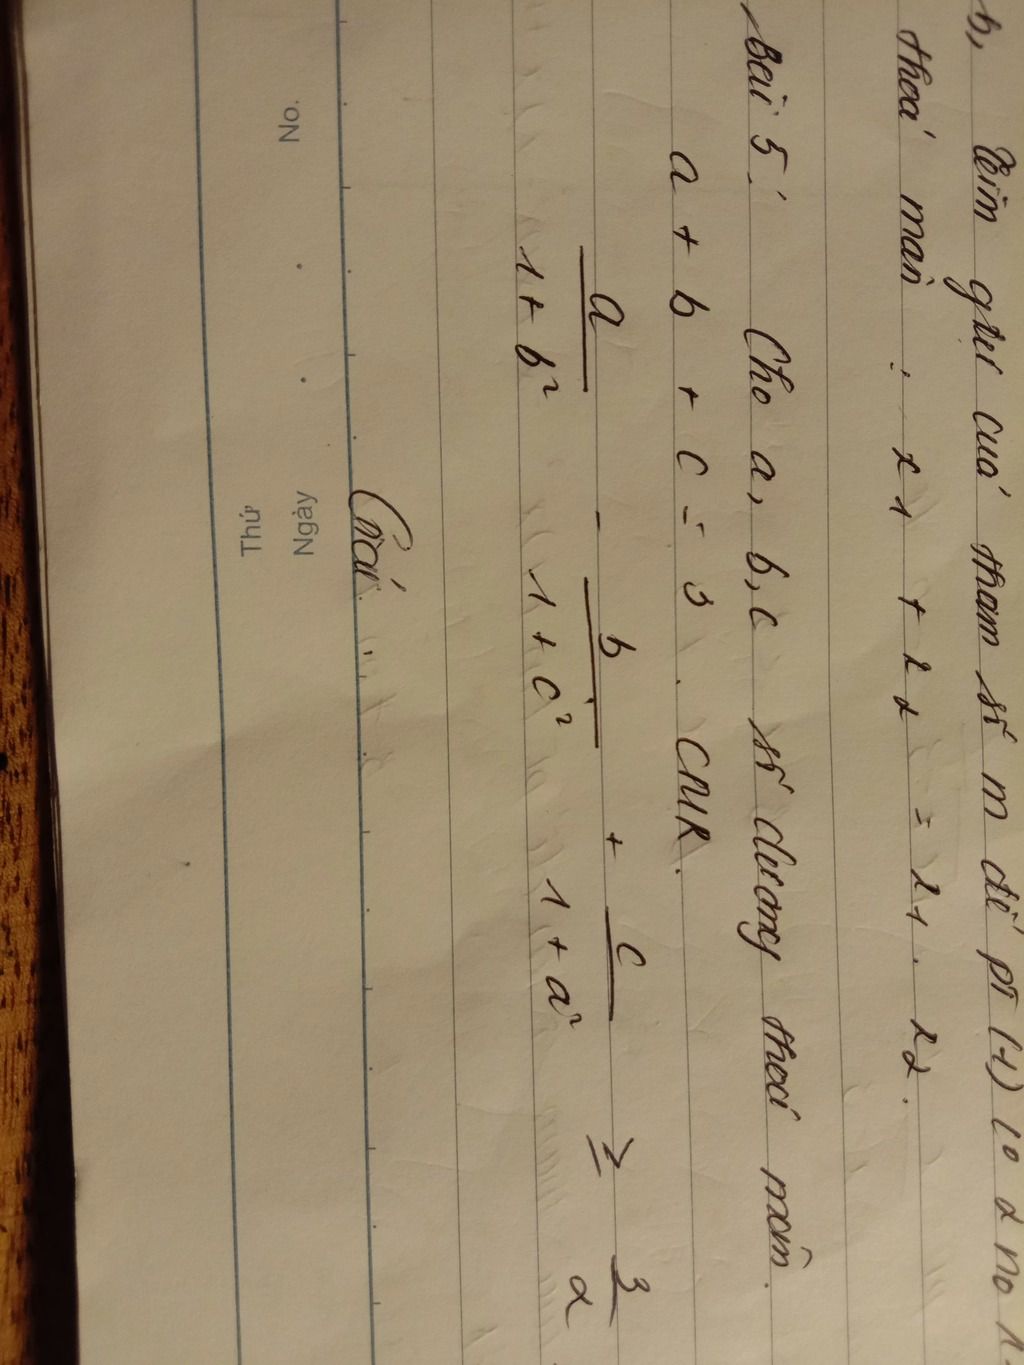 b, Tìm gtri của tham số m để pt (1) có 2 no
thoả mãn : x1 + x2 = x1 . x2 .
Bài 5 : Cho a, b, c số dương thoả mãn .
a + b + c = 3 . CMR .
a/(1 + b²) - b/(1 + c²) + c/(1 + a²) ≥ 3/2
Giải :
No.
Ngày
Thứ